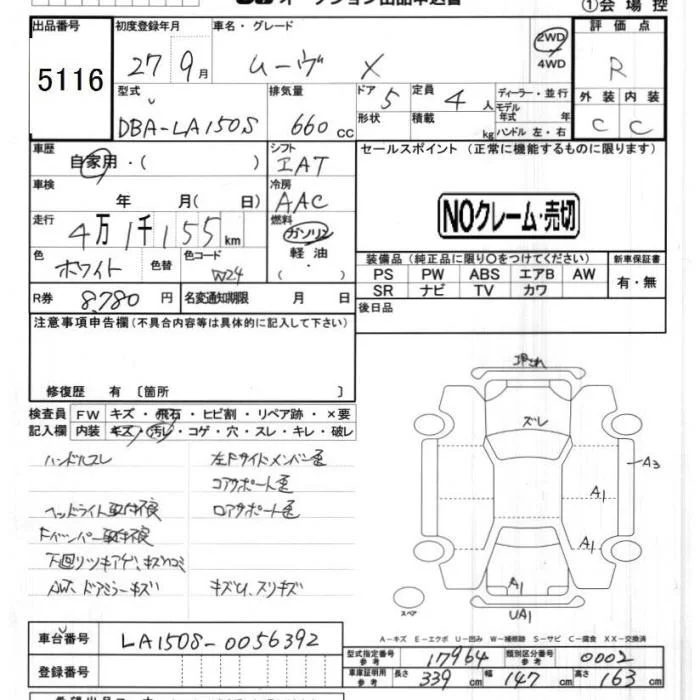 オークション出品申込書
①会場控
出品番号 初度登録年月 車名・グレード 評価点
5116 27 9月 ムーヴ X 2WD 4WD R
型式 排気量 ドア 定員 ディーラー・並行 外装 内装
DBA-LA150S 660cc 5 4人 モデル年式 年 C C
形状 積載 kg ハンドル 左・右
車歴 シフト セールスポイント (正常に機能するものに限ります)
自家用・( ) IAT
車検 冷房
年 月( 日) AAC NOクレーム・売切
走行 燃料
4万1千155km ガソリン
色 色替 色コード 軽油 装備品 (純正品に限り○をつけてください) 新車保証書
ホワイト W24 ・ PS PW ABS エアB AW 有・無
SR ナビ TV カワ
R券 8,780円 名変通知期限 月 日 後日品
注意事項申告欄(不具合内容等は具体的に記入して下さい)
修復歴 有 〔箇所 〕
検査員 FW キズ・飛石・ヒビ割・リペア跡・×要
記入欄 内装 キズ・汚レ・コゲ・穴・スレ・キレ・破レ
ハンドルスレ 左Fサイドメンバー歪
コアサポート歪
ヘッドライト取付不良 ロアサポート歪
Fバンパー取付不良
下回リツキアゲ、キズ
AW、ドアミラーキズ キズU、スリキズ
ズレ
A3
A1
A1
A1
スペア UA1
A-キズ E-エクボ U-凹み W-補修跡 S-サビ C-腐食 XX-交換済
車台番号 LA150S-0056392
型式指定番号 参考 17964 類別区分番号 参考 0002
登録番号 車庫証明用 参考 長さ 339cm 幅 147cm 高さ 163cm